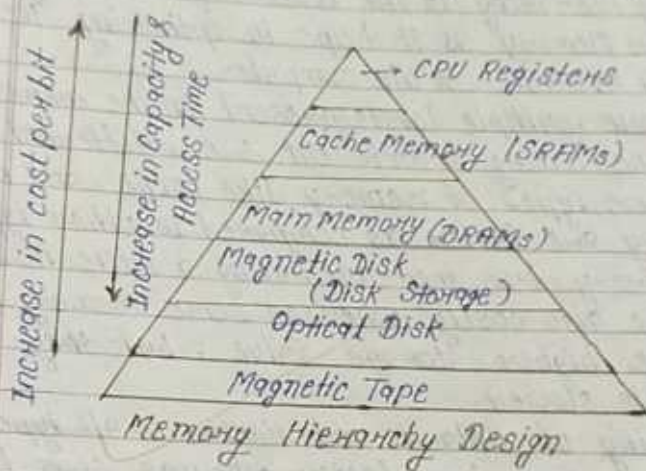 Increase in cost per bit
Increase in Capacity &
Access Time
CPU Registers
Cache Memory (SRAMs)
Main Memory (DRAMs)
Magnetic Disk
(Disk Storage)
Optical Disk
Magnetic Tape
Memory Hierarchy Design